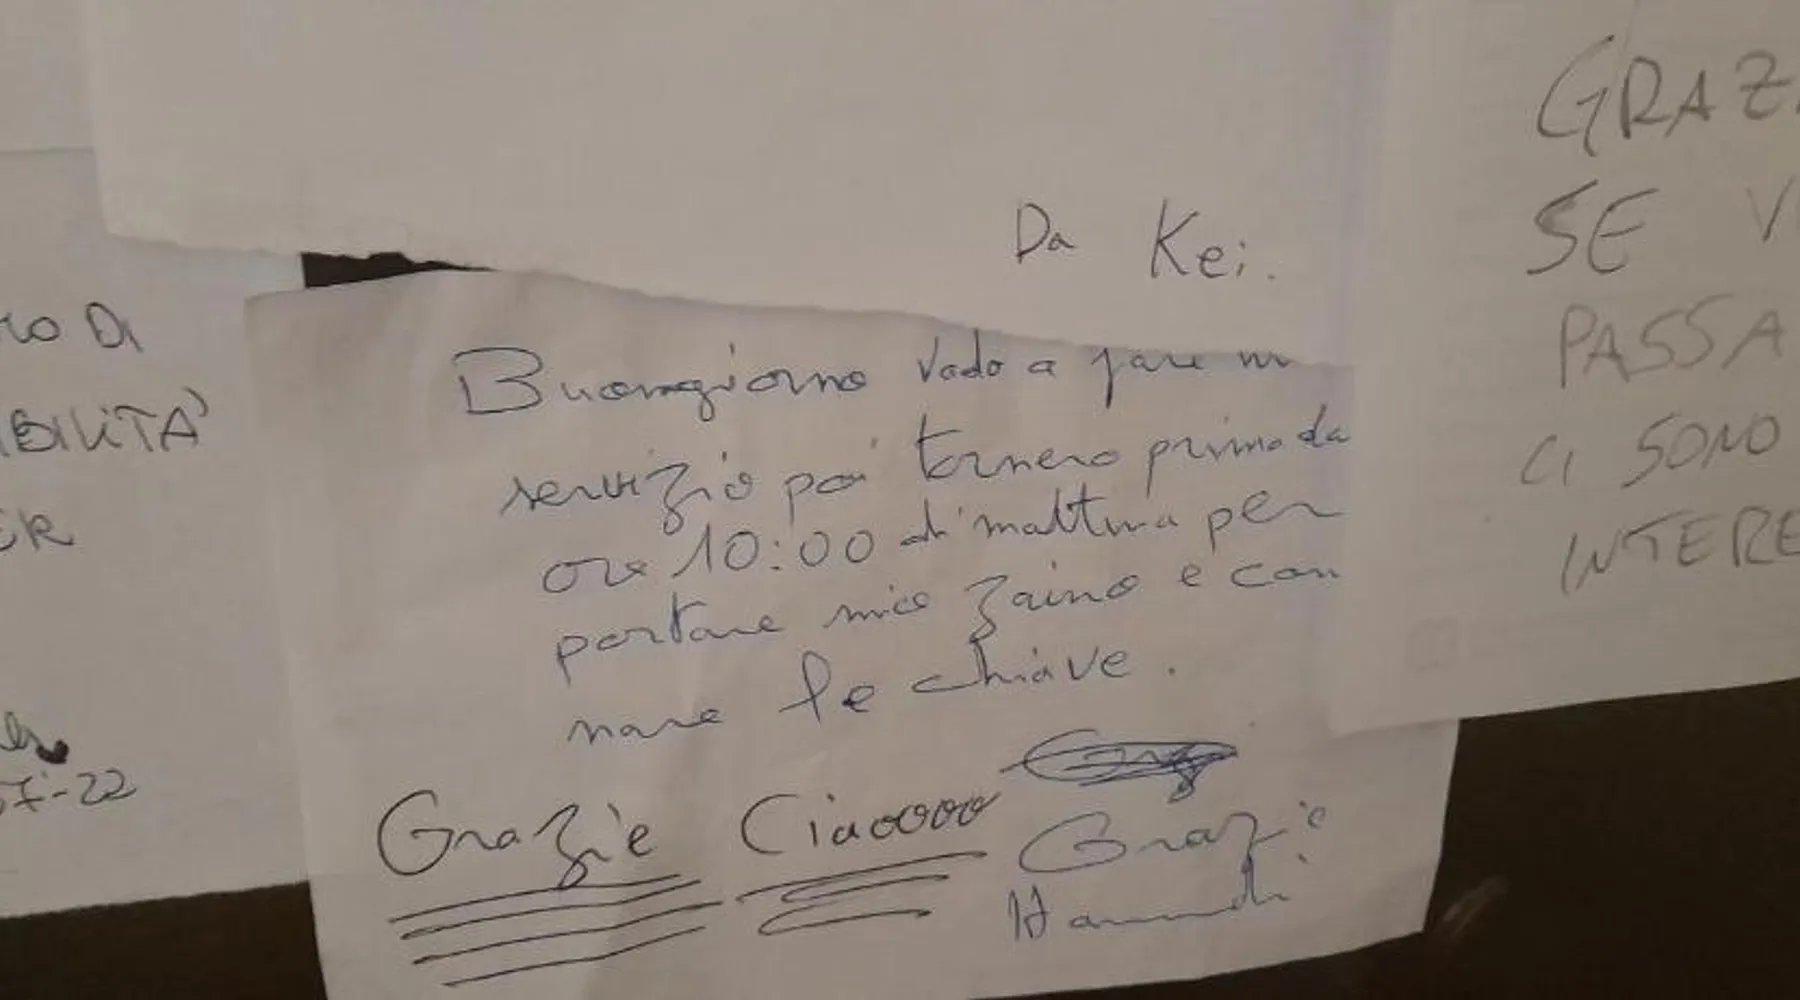 Da Kei.
Buongiorno vado a fare
servizio poi tornero prima da
ore 10:00 di mattina per
portare mio zaino e con
nare le chiave.
Grazie Ciaoooo Grazie
DI
BILITA'
ER
7-22
GRAZ
SE V
PASSA
CI SONO
INTERE